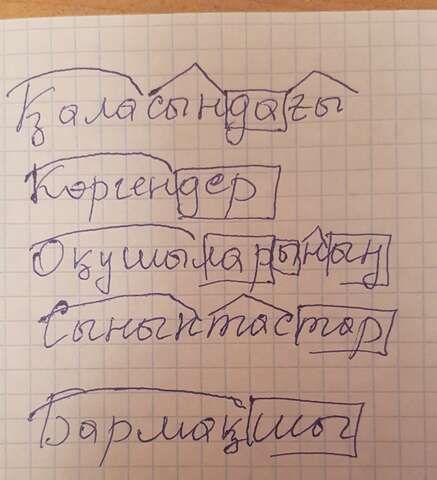 Қаласындағы
Көргендер
Оқушыларының
Сыныптастар
Бармақшы